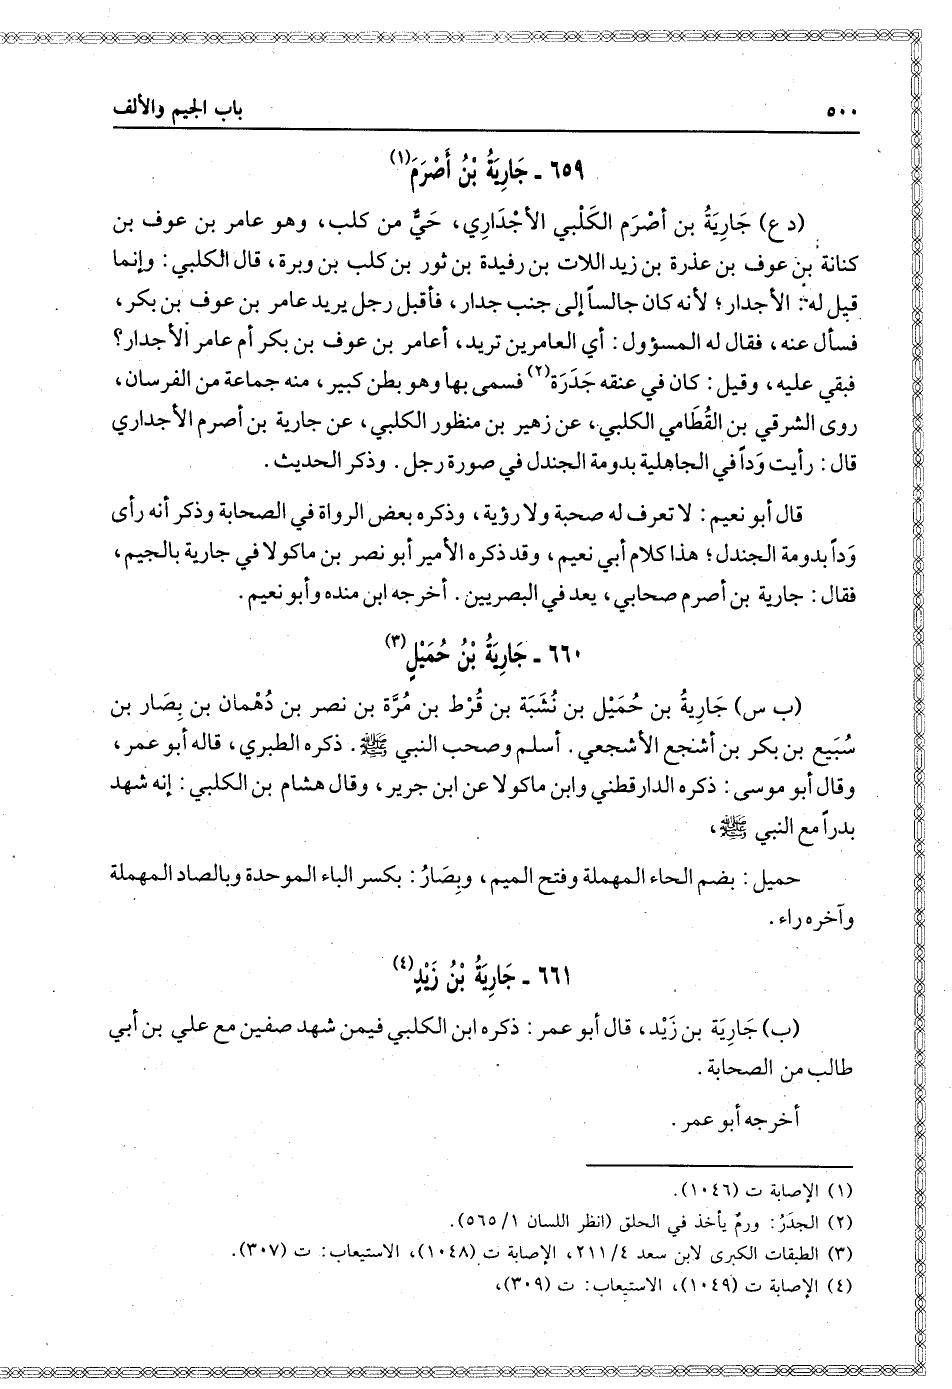 ٥٠٠
باب الجيم والألف
٦٥٩ ـ جَارِيَةُ بْنُ أَصْرَمَ(١)
(د ع) جَارِيَةُ بن أصْرَم الكَلْبي الأجْدَارِي، حَيٌّ من كلب، وهو عامر بن عوف بن
كنانة بن عوف بن عذرة بن زيد اللات بن رفيدة بن ثور بن كلب بن وبرة، قال الكلبي: وإنما
قيل له: الأجدار؛ لأنه كان جالساً إلى جنب جدار، فأقبل رجل يريد عامر بن عوف بن بكر،
فسأل عنه، فقال له المسؤول: أي العامرين تريد، أعامر بن عوف بن بكر أم عامر الأجدار؟
فبقي عليه، وقيل: كان في عنقه جَدَرَة(٢) فسمى بها وهو بطن كبير، منه جماعة من الفرسان،
روى الشرقي بن القُطَامي الكلبي، عن زهير بن منظور الكلبي، عن جارية بن أصرم الأجداري
قال: رأيت وَداً في الجاهلية بدومة الجندل في صورة رجل. وذكر الحديث.
قال أبو نعيم: لا تعرف له صحبة ولا رؤية، وذكره بعض الرواة في الصحابة وذكر أنه رأى
وَداً بدومة الجندل؛ هذا كلام أبي نعيم، وقد ذكره الأمير أبو نصر بن ماكولا في جارية بالجيم،
فقال: جارية بن أصرم صحابي، يعد في البصريين. أخرجه ابن منده وأبو نعيم.
٦٦٠ ـ جَارِيَةُ بْنُ حُمَيْلٍ(٣)
(ب س) جَارِيةُ بن حُمَيْل بن نُشَبَة بن قُرْط بن مُرَّة بن نصر بن دُهْمان بن بِصَار بن
سُبَيع بن بكر بن أشنجع الأشجعي. أسلم وصحب النبي ﷺ. ذكره الطبري، قاله أبو عمر،
وقال أبو موسى: ذكره الدارقطني وابن ماكولا عن ابن جرير، وقال هشام بن الكلبي: إنه شهد
بدراً مع النبي ﷺ،
حميل: بضم الحاء المهملة وفتح الميم، وبِصَارُ: بكسر الباء الموحدة وبالصاد المهملة
وآخره راء.
٦٦١ ـ جَارِيَةُ بْنُ زَيْدٍ(٤)
(ب) جَارِيَة بن زَيْد، قال أبو عمر: ذكره ابن الكلبي فيمن شهد صفين مع علي بن أبي
طالب من الصحابة.
أخرجه أبو عمر.
(١) الإصابة ت (١٠٤٦).
(٢) الجدَرُ: ورمٌ يأخذ في الحلق (انظر اللسان ٥٦٥/١).
(٣) الطبقات الكبرى لابن سعد ٢١١/٤، الإصابة ت (١٠٤٨)، الاستيعاب: ت (٣٠٧).
(٤) الإصابة ت (١٠٤٩)، الاستيعاب: ت (٣٠٩)،